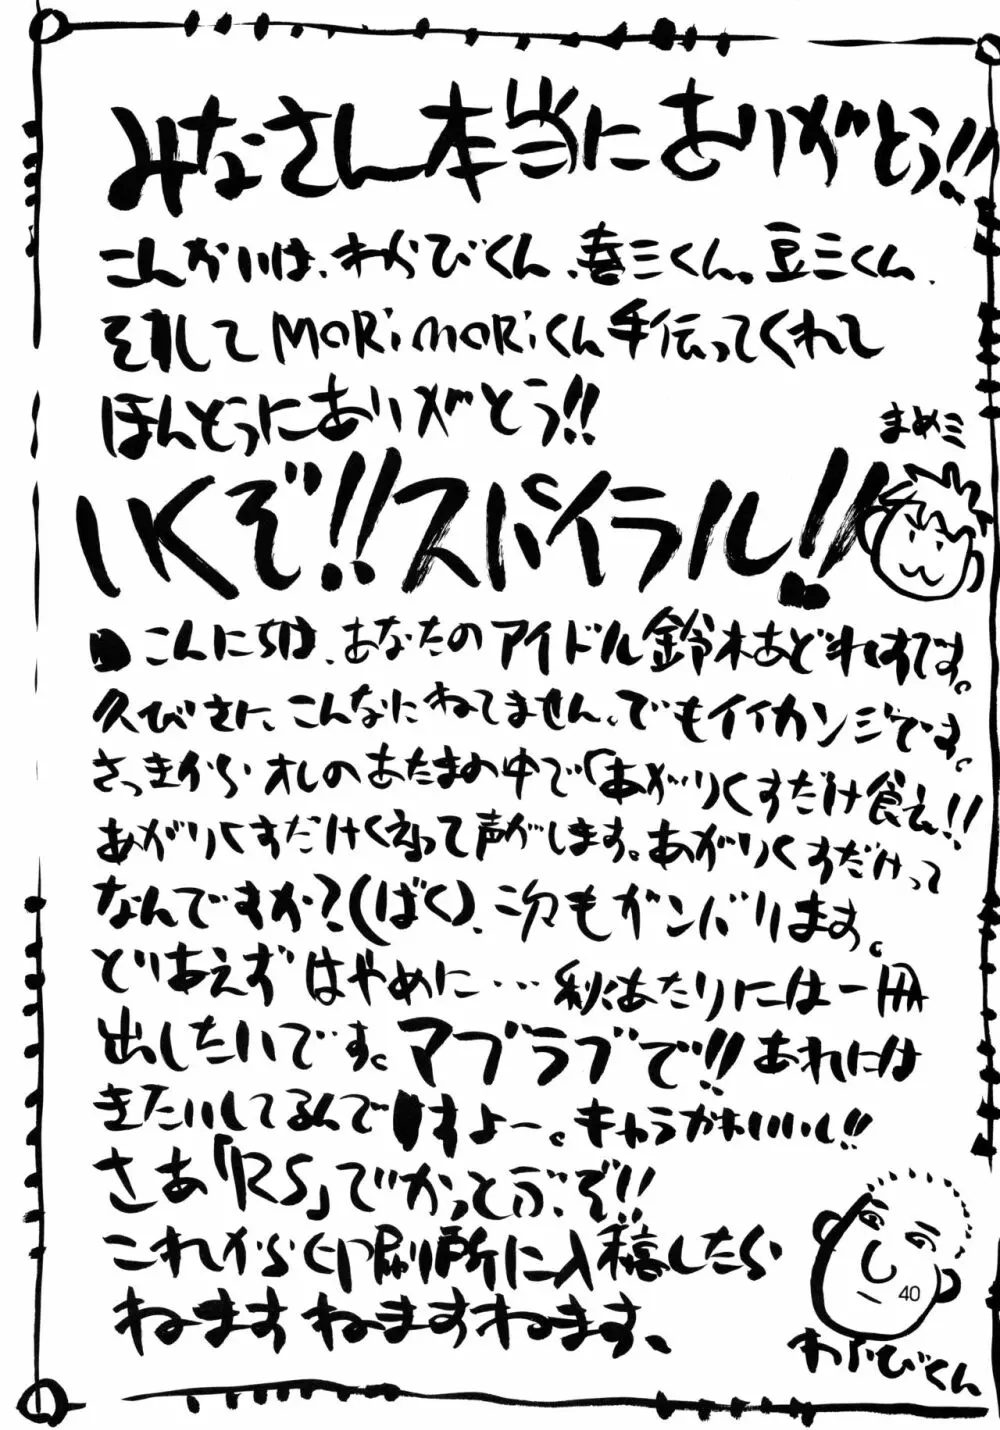 みなさん本当にありがとう!!
こんかいは、わらびくん、喜三くん。豆三くん、
そしてMORiMORiくん手伝ってくれて
ほんとうにありがとう!!
まめミ
いくぞ!!スパイラル!!
こんにちは、あなたのアイドル鈴木あどれすです。
久びさに、こんなにねてません、でもイイカンジです。
さっきからオレのあたまの中で「あがりくすだけ食え!!
あがりくすだけくえって声がします。あがりくすだけって
なんですか?(ばく)、次もガンバリます。
とりあえずはやめに…秋あたりには一冊
出したいです。マブラブで!!あれには
きたいしてるんですよー。キャラかわいいし!!
さあ「RS」でかっとぶぞ!!
これから印刷所に入稿したら
ねますねますねます、
40
わらびくん